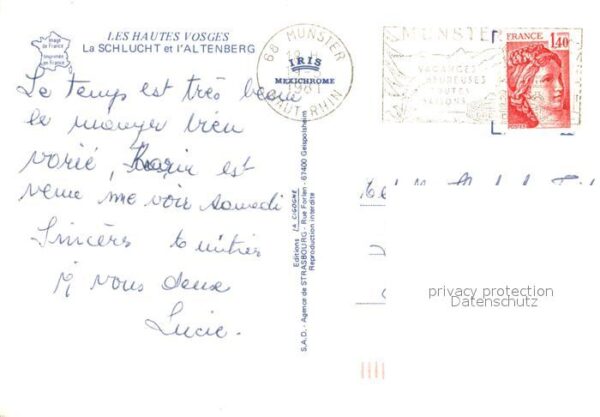 LES HAUTES VOSGES
La SCHLUCHT et l'ALTENBERG
Image de France
Imprimée en France
IRIS
MEXICHROME
68 MUNSTER
1981
HAUT-RHIN
MUNSTER
VACANCES
TOUTES
SAISONS
FRANCE
1,40
POSTES
Le temps est très beau
le manger bien
varié, est
venue me voir samedi
Sincères
à vous deux
Lucie.
Editions LA CIGOGNE
S.A.D. - Agence de STRASBOURG - Rue Forlen - 67400 Geispolsheim
Reproduction interdite
privacy protection
Datenschutz